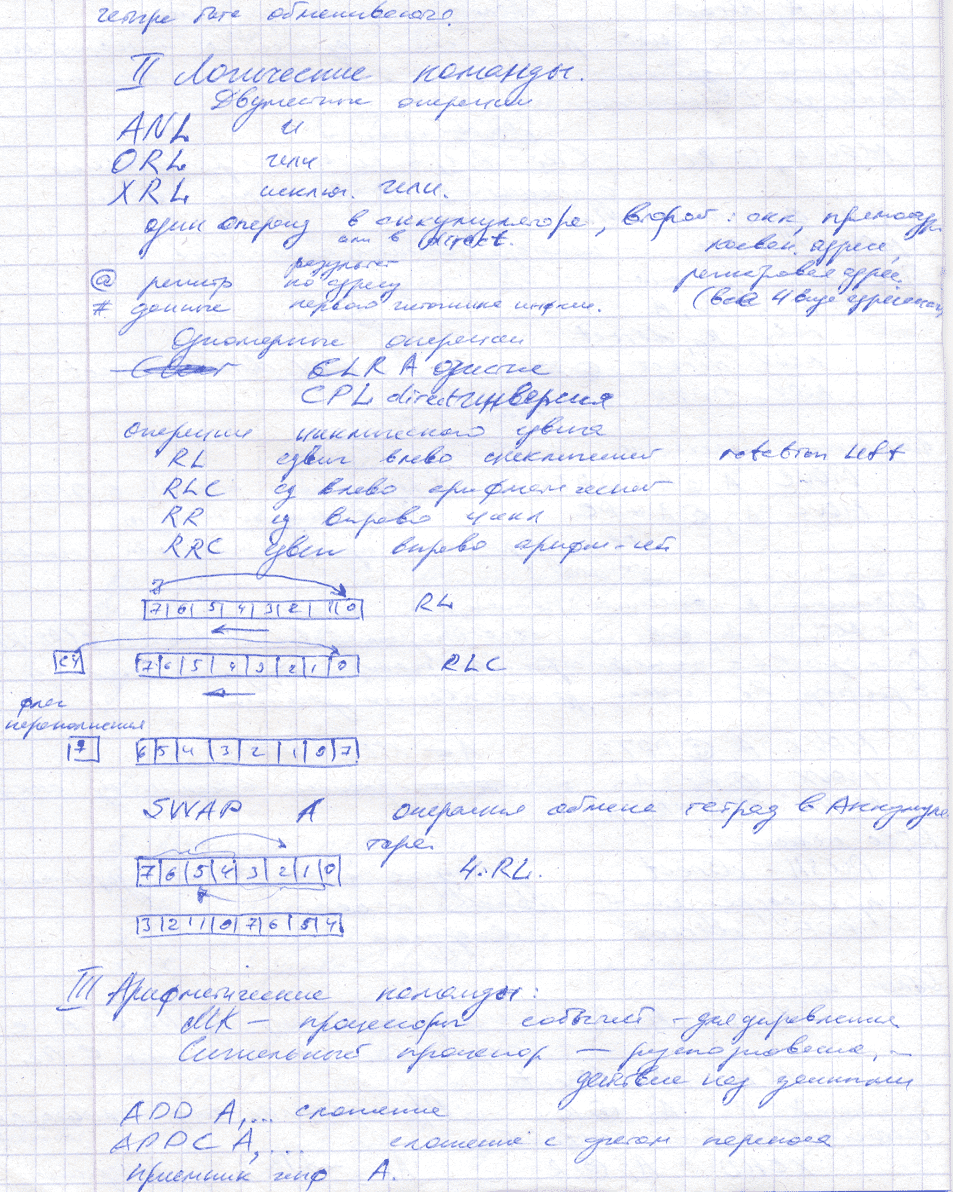 четыре бита обмениваются.
II Логические команды.
Двуместные операции
ANL и
ORL или
XRL исключ. или.
один операнд в аккумуляторе, второй: акк, прямоадр.
или в direct. косвен. адресе,
результат регистровая адрес.
@ регистр по адресу (все 4 вида адресации)
# данные первого источника информ.
Одномерные операции
CLR A очистка
CPL direct инверсия
операции циклического сдвига
RL сдвиг влево циклический rotation left
RLC сд влево арифметический
RR сд вправо цикл
RRC сдвиг вправо арифм-ий
7 6 5 4 3 2 1 0 RL
CY 7 6 5 4 3 2 1 0 RLC
флаг
переполнения
7 6 5 4 3 2 1 0 7
SWAP A операция обмена тетрад в Аккумуля
торе.
7 6 5 4 3 2 1 0 4·RL.
3 2 1 0 7 6 5 4
III Арифметические команды:
МК – процессоры событий - для управления
Сигнальный процессор –
действие над данными
ADD A,... сложение
ADDC A,... сложение с учетом переноса
Приемник инф A.